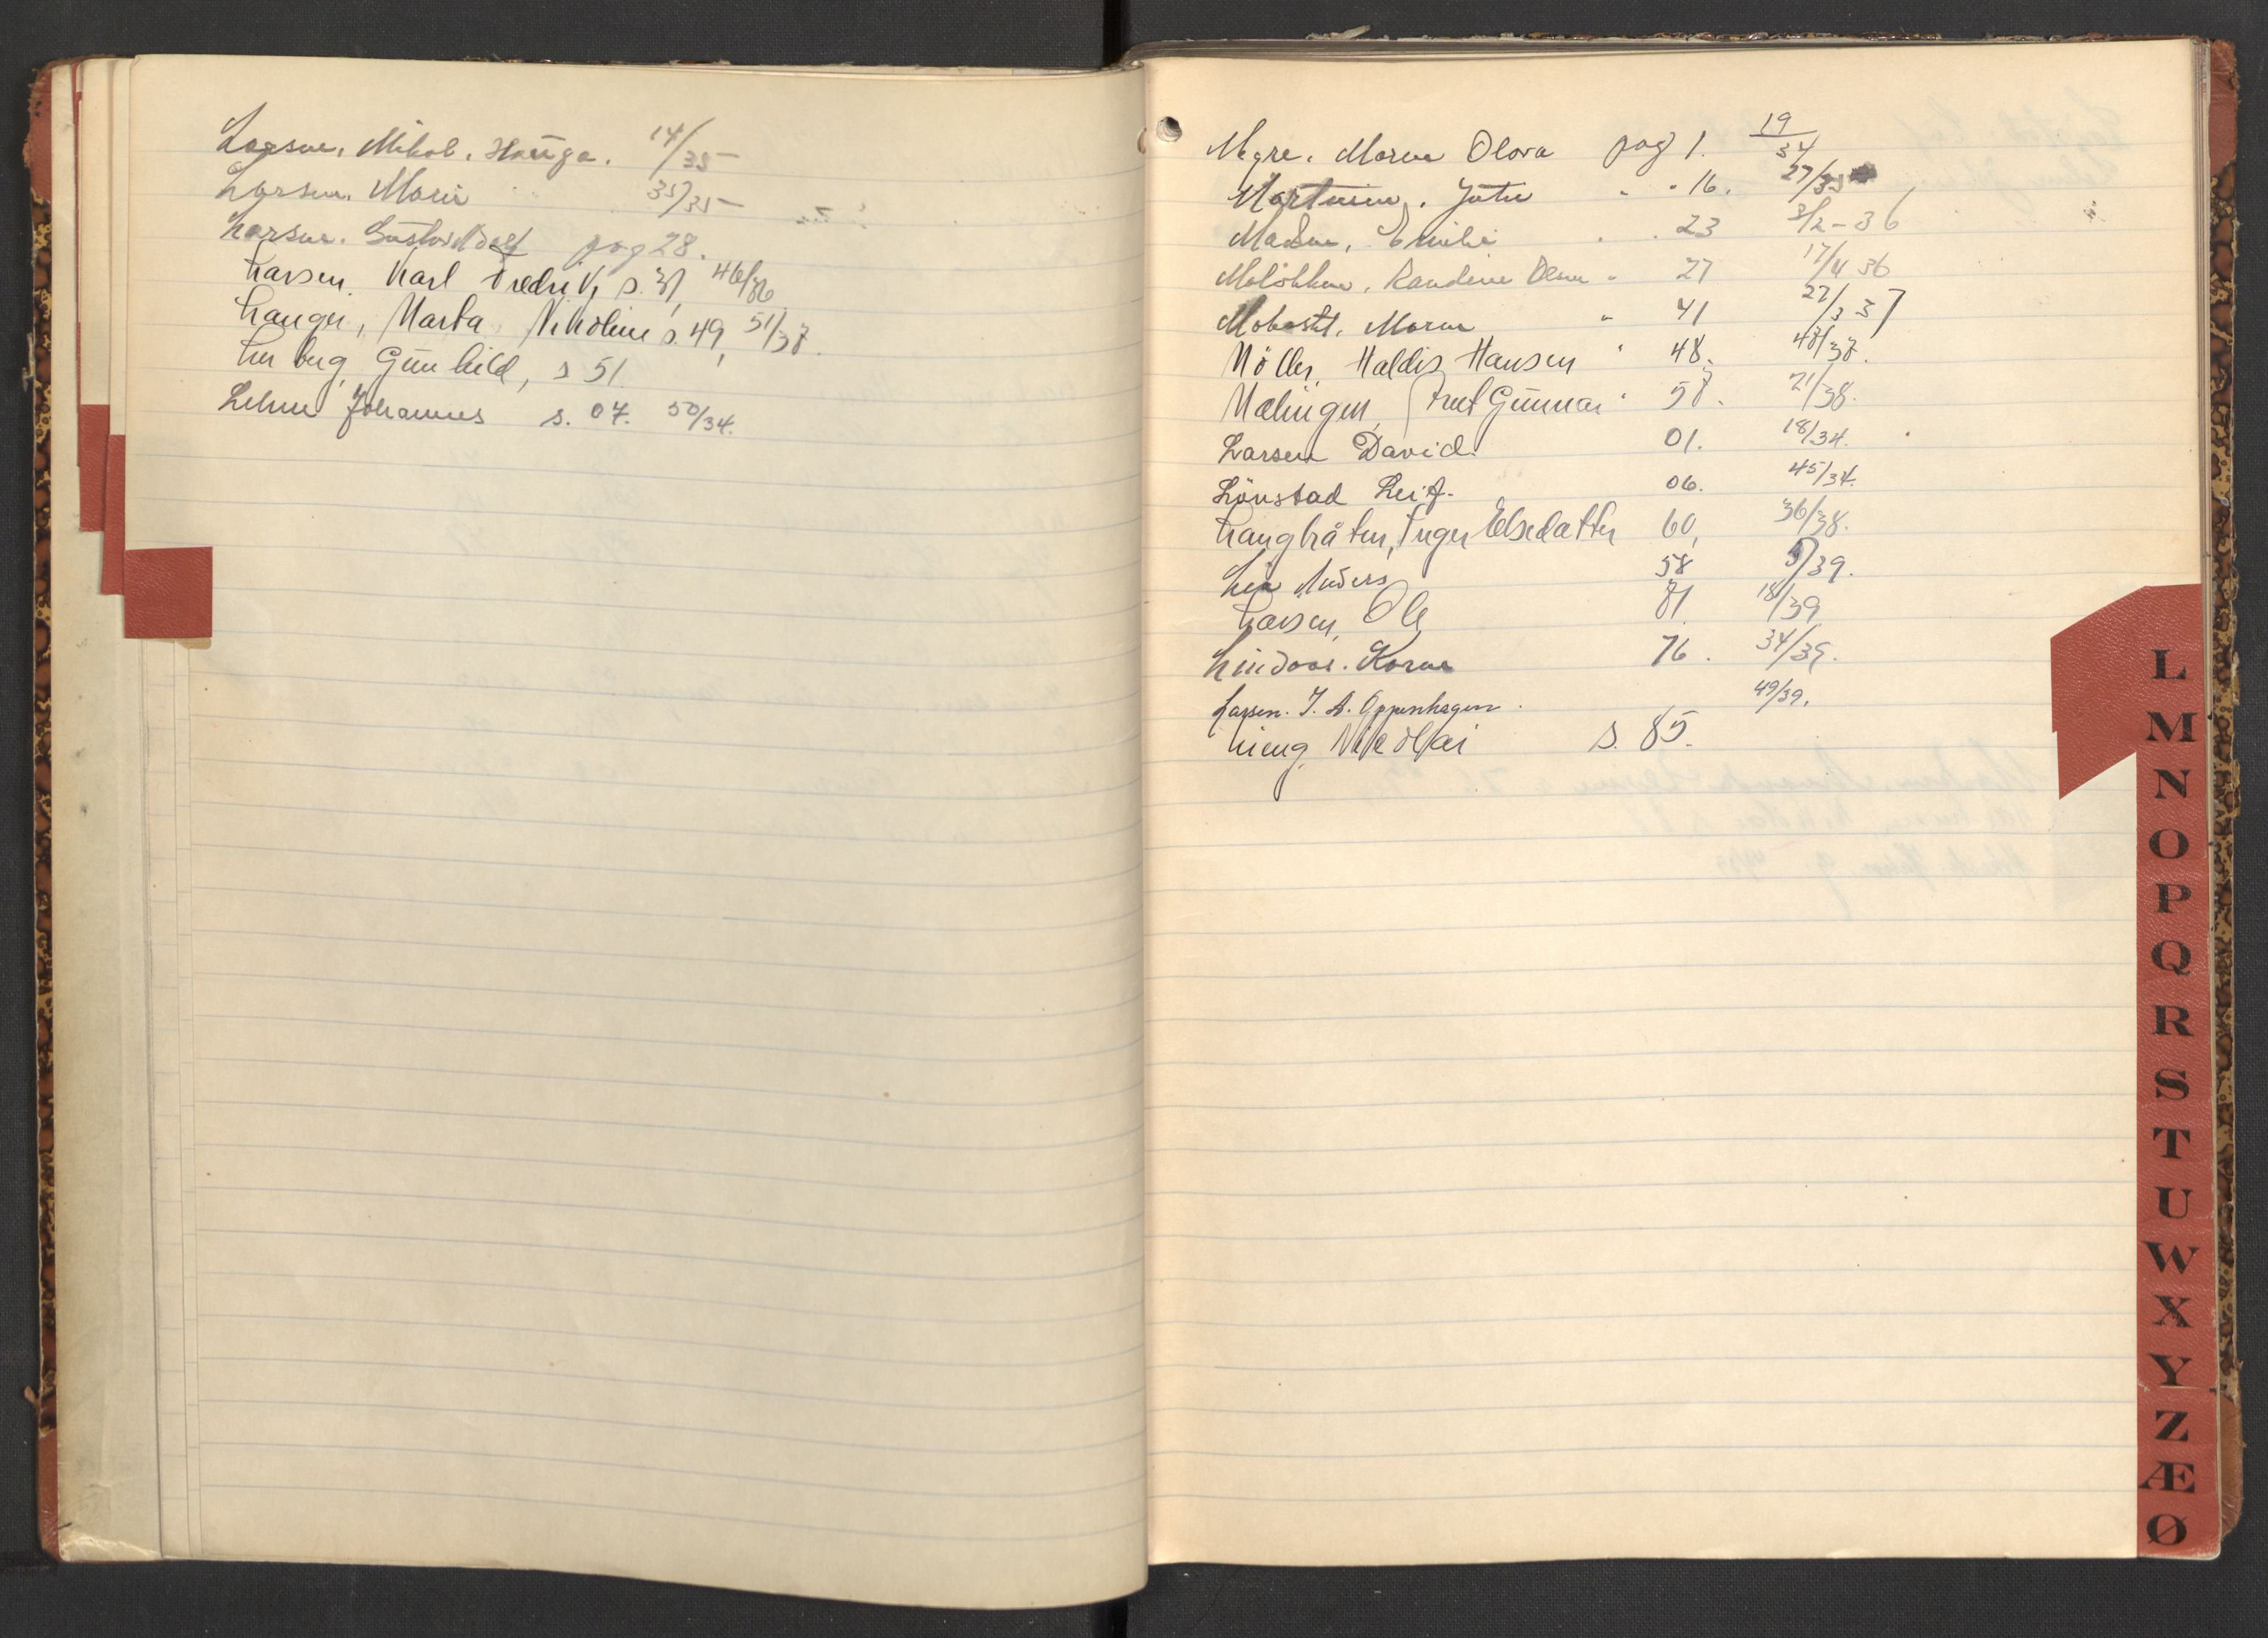 Larsen. Mikal. Hauga. 14/35
Larsen. Marie 35/35
Larsen. Gustav Adolf pag 28.
Larsen. Karl Fredrik, s. 31, 46/36
Langer, Marta Nikoline s. 49, 51/37.
Lerberg Gunhild, s 51.
Lehne Johannes s. 07. 50/34.
Megre. Maren Olava pag 1. 19/34
Martinsen. " " 16. 27/35
Madsen, Emilie " . 23 3/2-36
Melökken, Randine Olsen " 27 17/4 36
Maren " 41 22/3 37
Möller, Haldis Hansen " 48. 48/37.
Gunnar " 58. 21/38.
Larsen David. 01. 18/34.
Lönstad Leif. 06. 45/34.
Langbråten, Inger Elsedatter 60, 36/38.
Lia Anders 58 5/39.
Larsen, Ole 81. 18/39
Lindaas. Karen 76. 34/39.
Larsen. J. A. Oppenhagen. 49/39.
Lieng, Nikolai s. 85.
L
M
N
O
P
Q
R
S
T
U
W
X
Y
Z
Æ
Ø